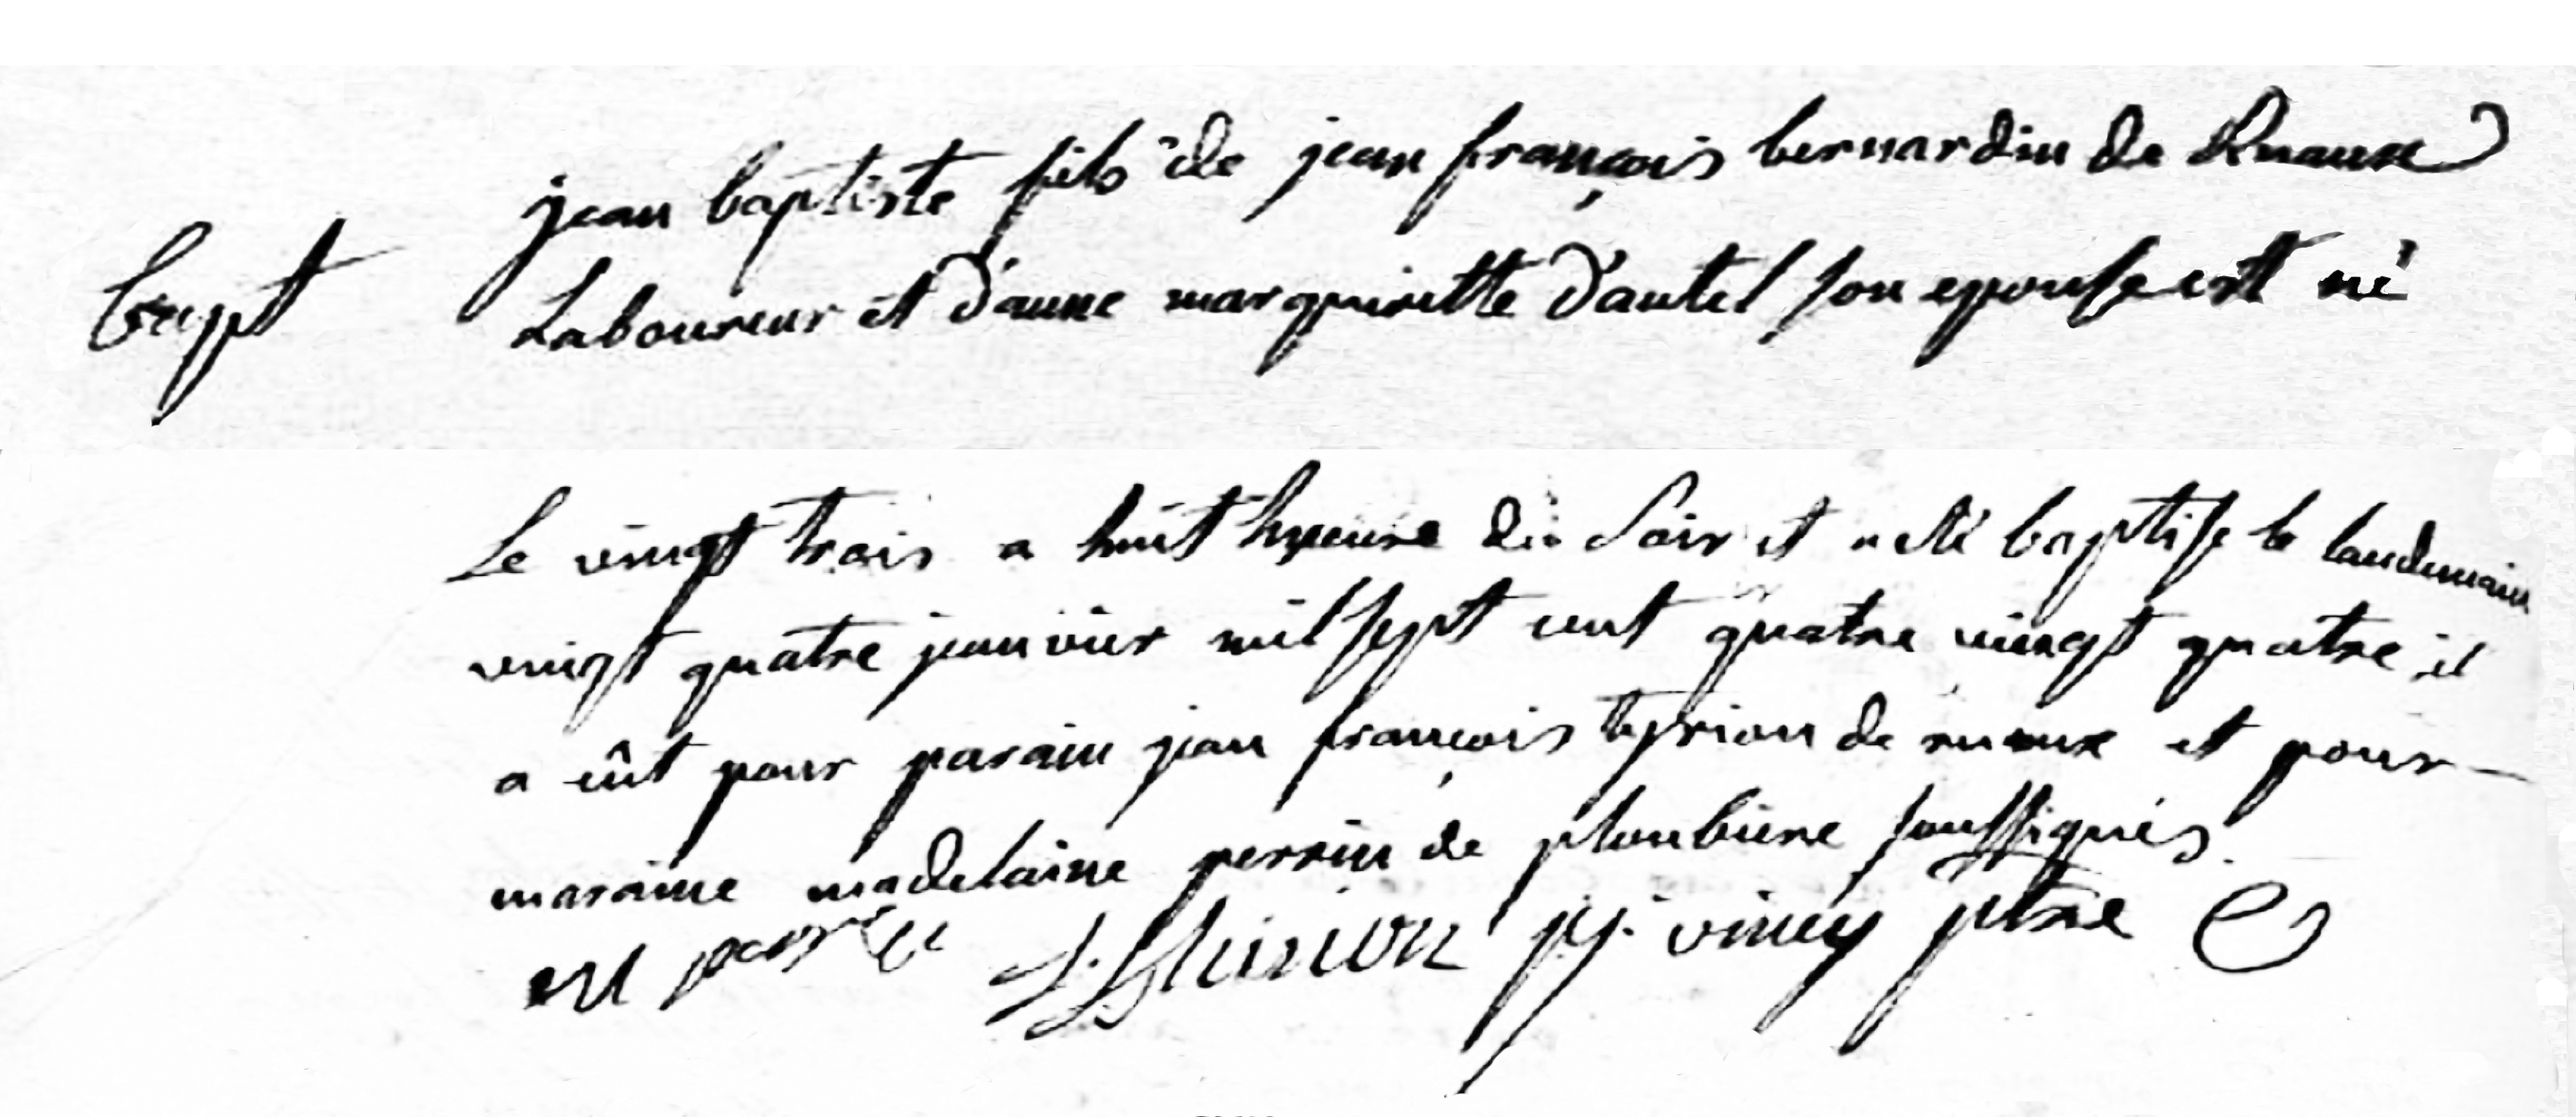 jean baptiste fils de jean françois bernardin de Ruaux
bapt
Laboureur et d'anne marguiritte d'autel son epouse est né
Le vingt trois a huit hyeure du Soir et a eté baptise le landemain
vingt quatre janvier mil sept cent quatre vingt quatre il
a eût pour parain jean françois tyrion de ruaux et pour
maraine madelaine perrin de plonbiere soussignés
M perrin J. f thirion pj. viney ptre